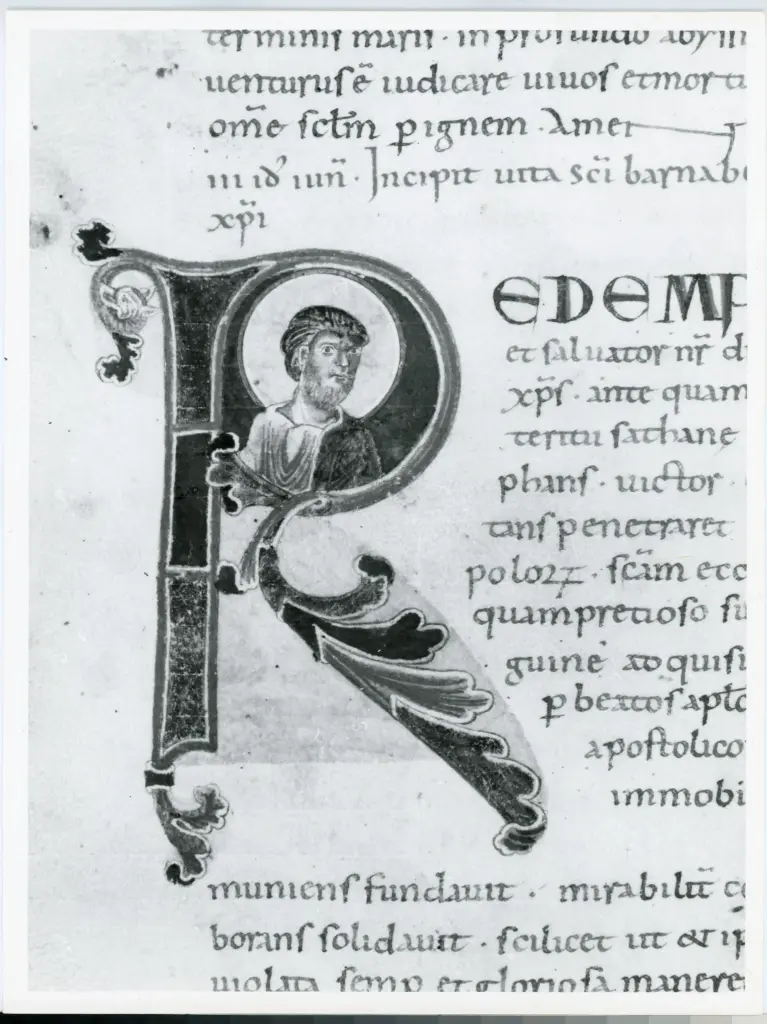 terminis maris · in profundo abyssi
uenturus ē iudicare uiuos et mortu
om̄e sc̄lm p ignem · Amen
iii id' iun̄ · Incipit uita sc̄i barnabe
xp̄i
REDEMP
et saluator nr̄ d
xp̄s · ante quam
territu sathane
phans · uictor ·
tans penetraret
poloꝝ · sc̄am ecc
quam pretioso su
guine adquisi
p beatos apl̄o
apostolico
immobi
muniens fundauit · mirabilit̄ c
borans solidauit · scilicet ut et ip
uiolata semp et gloriosa manere